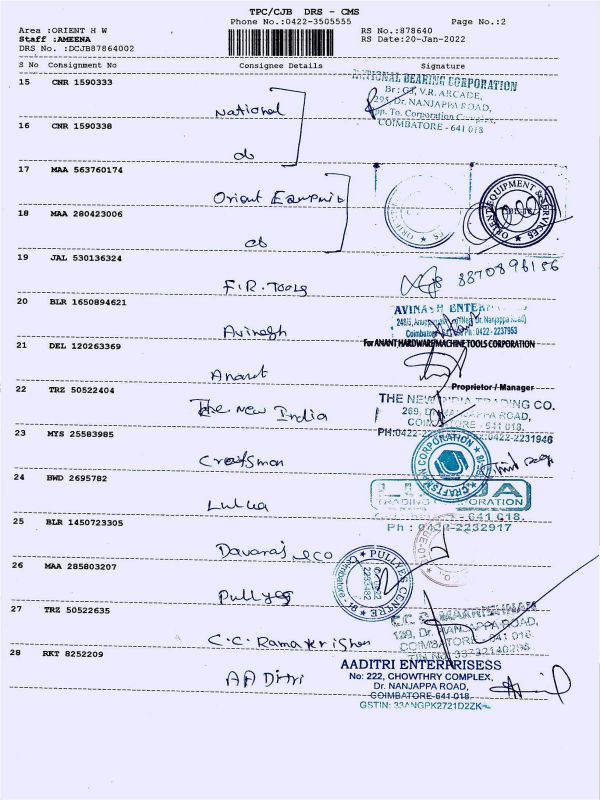 TPC/CJB DRS - CMS
Phone No.:0422-3505555 Page No.:2
Area :ORIENT H W RS No.:878640
Staff :AMEENA RS Date:20-Jan-2022
DRS No. :DCJB87864002
S No Consignment No Consignee Details Signature
15 CNR 1590333 National
NATIONAL BEARING CORPORATION
Br : G3, V.R. ARCADE,
295, Dr. NANJAPPA ROAD,
Opp. To. Corporation Complex,
COIMBATORE - 641 018
16 CNR 1590338 do
17 MAA 563760174 Orient Equpmib
ORIENT EQUIPMENT & SERVICES
18 MAA 280423006 do
19 JAL 530136324 F.R. Tools 8870896156
20 BLR 1650894621 Avinash
AVINASH ENTER
Coimbatore Ph : 0422 - 2237953
For ANANT HARDWARE MACHINE TOOLS CORPORATION
21 DEL 120263369 Anant
Proprietor / Manager
22 TRZ 50522404 The New India
THE NEW INDIA TRADING CO.
269, Dr. NANJAPPA ROAD,
COIMBATORE - 641 018.
PH:0422-2231946
23 MTS 25583985 Craftsman
CRAFTSMAN CORPORATION
24 BWD 2695782 Lulua
TRADING CORPORATION
- 641 018.
Ph : 0422-2232917
25 BLR 1450723305 Davaraj eco
26 MAA 285803207 Pullyes
PULLYES CENTRE
27 TRZ 50522635 C.C. Ramakrishnan
C.C. RAMAKRISHNAN
139, Dr. NANJAPPA ROAD,
COIMBATORE - 641 018.
28 RKT 8252209 AADitri
AADITRI ENTERRISESS
No: 222, CHOWTHRY COMPLEX,
Dr. NANJAPPA ROAD,
COIMBATORE-641 018.
GSTIN: 33ANGPK2721D2ZK